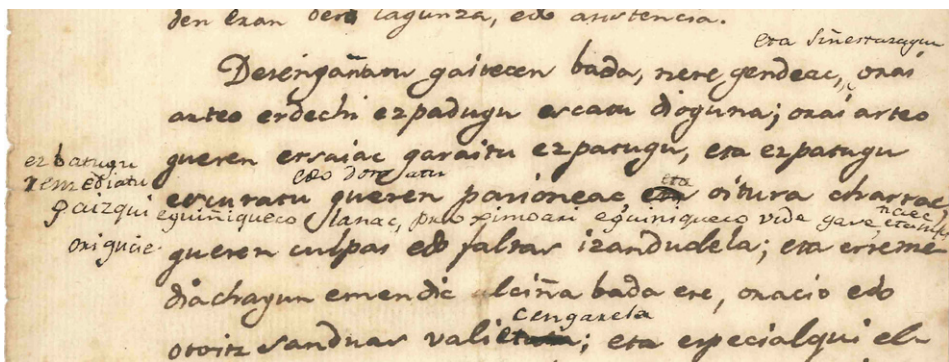 den eran dera lagunza, edo asistencia.
eta siñerrazagun
Desengañatu gaitecen bada, nere gendeac, orai
arteo erdechi ezpadugu escatu dioguna; orai arteo
gueren etsaiac garaitu ezpatugu, eta ezpatugu
ezbatugu
remediatu
edo domatu
escuratu gueren pasioneac, eta oitura charrac
gaizqui eguiñiqueco lanac, proximoari eguiniqueco vide gave
ori gucie
gueren culpas edo faltas izandudela; eta erreme-
diachagun emendic alciña bada ere, oracio edo
cengarela
otoitz sanduas vali; eta especialqui el-